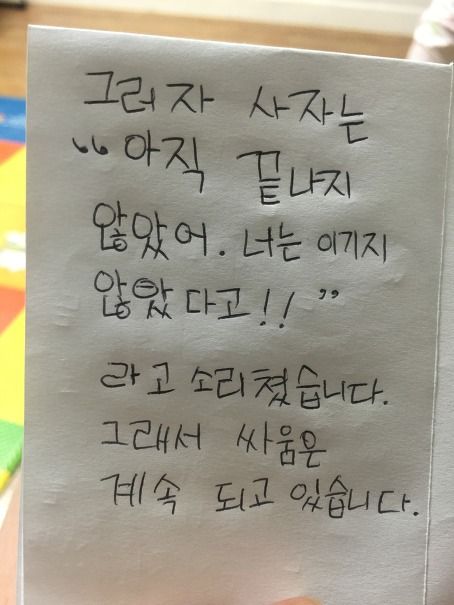 그러자 사자는
“아직 끝나지
않았어. 너는 이기지
않았다고!!”
라고 소리쳤습니다.
그래서 싸움은
계속 되고 있습니다.